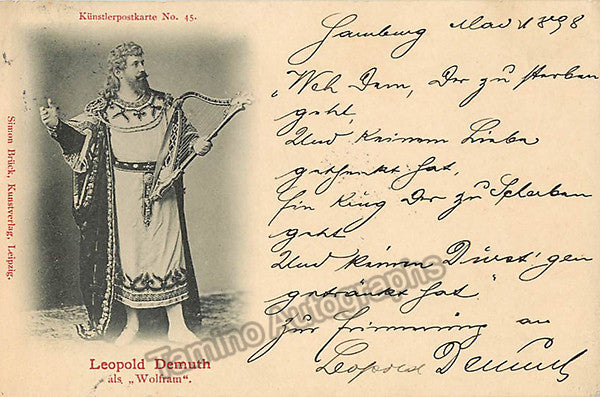 Künstlerpostkarte No. 45.
Simon Brück, Kunstverlag, Leipzig.
Leopold Demuth
als „Wolfram“.
Hamburg Mai 1898
„Weh Dem, Der zu sterben
geht,
Und Keinem Liebe
geschenkt hat,
Ein Krug Der zu Scherben
geht
Und keinen Durst'gen
getränkt hat.“
zur Erinnerung an
Leopold Demuth
Tamino Autographs